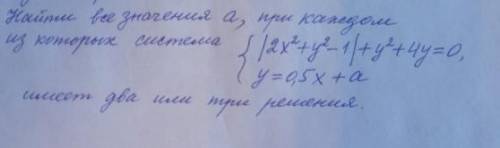 Найти все значения a, при каждом
из которых система { |2x²+y²-1|+y²+4y=0,
y=0,5x+a
имеет два или три решения.